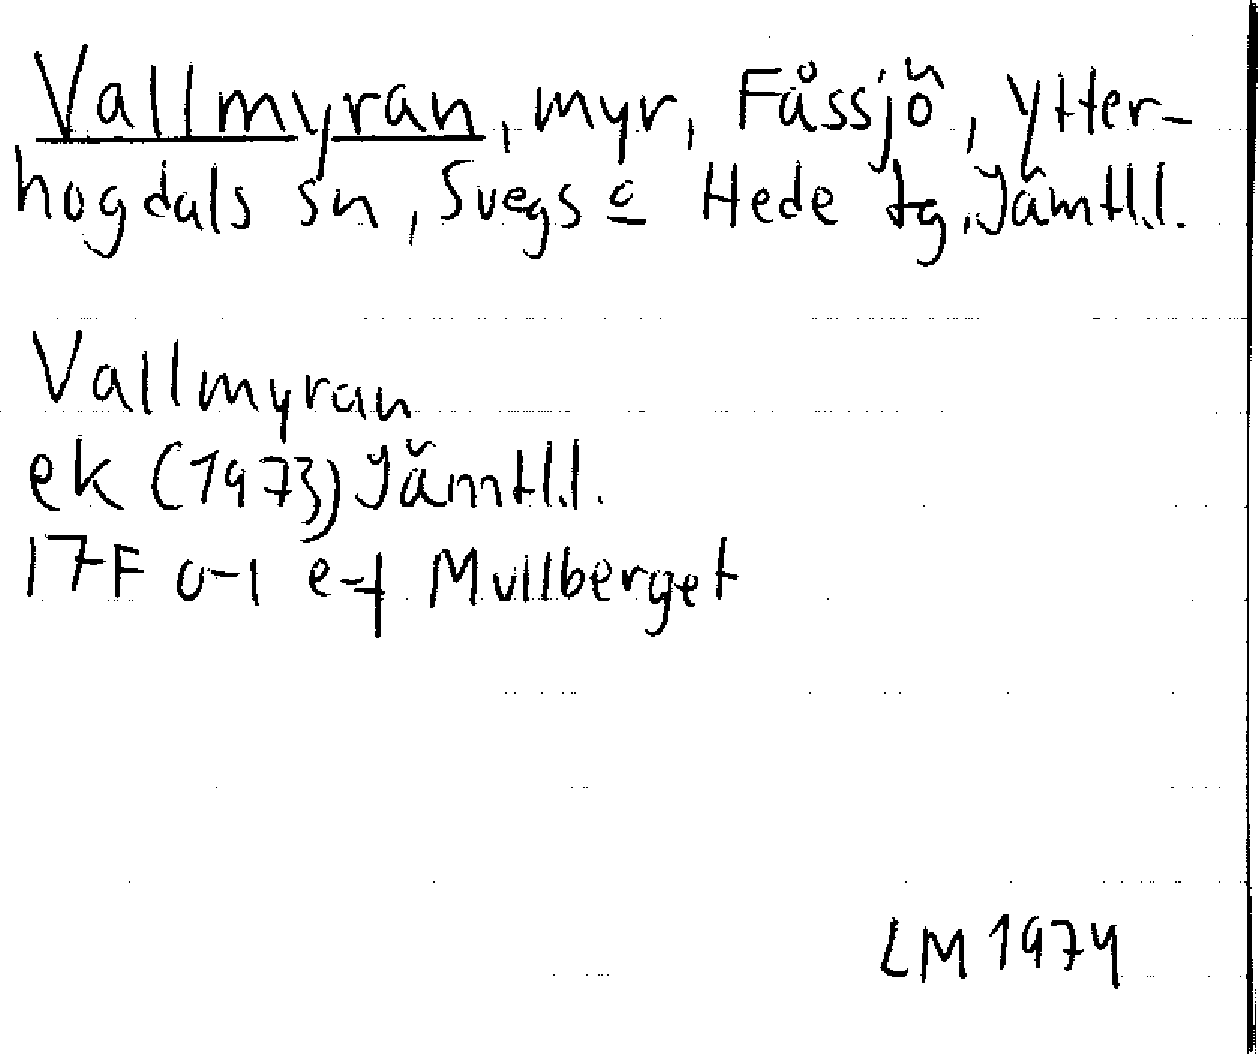 Vallmyran, myr, Fåssjö, Ytter-
hogdals sn, Svegs o Hede tg, Jämtl.l.
Vallmyran
ek (1973) Jämtl.l.
17F 0-1 e-f Mullberget
LM 1974